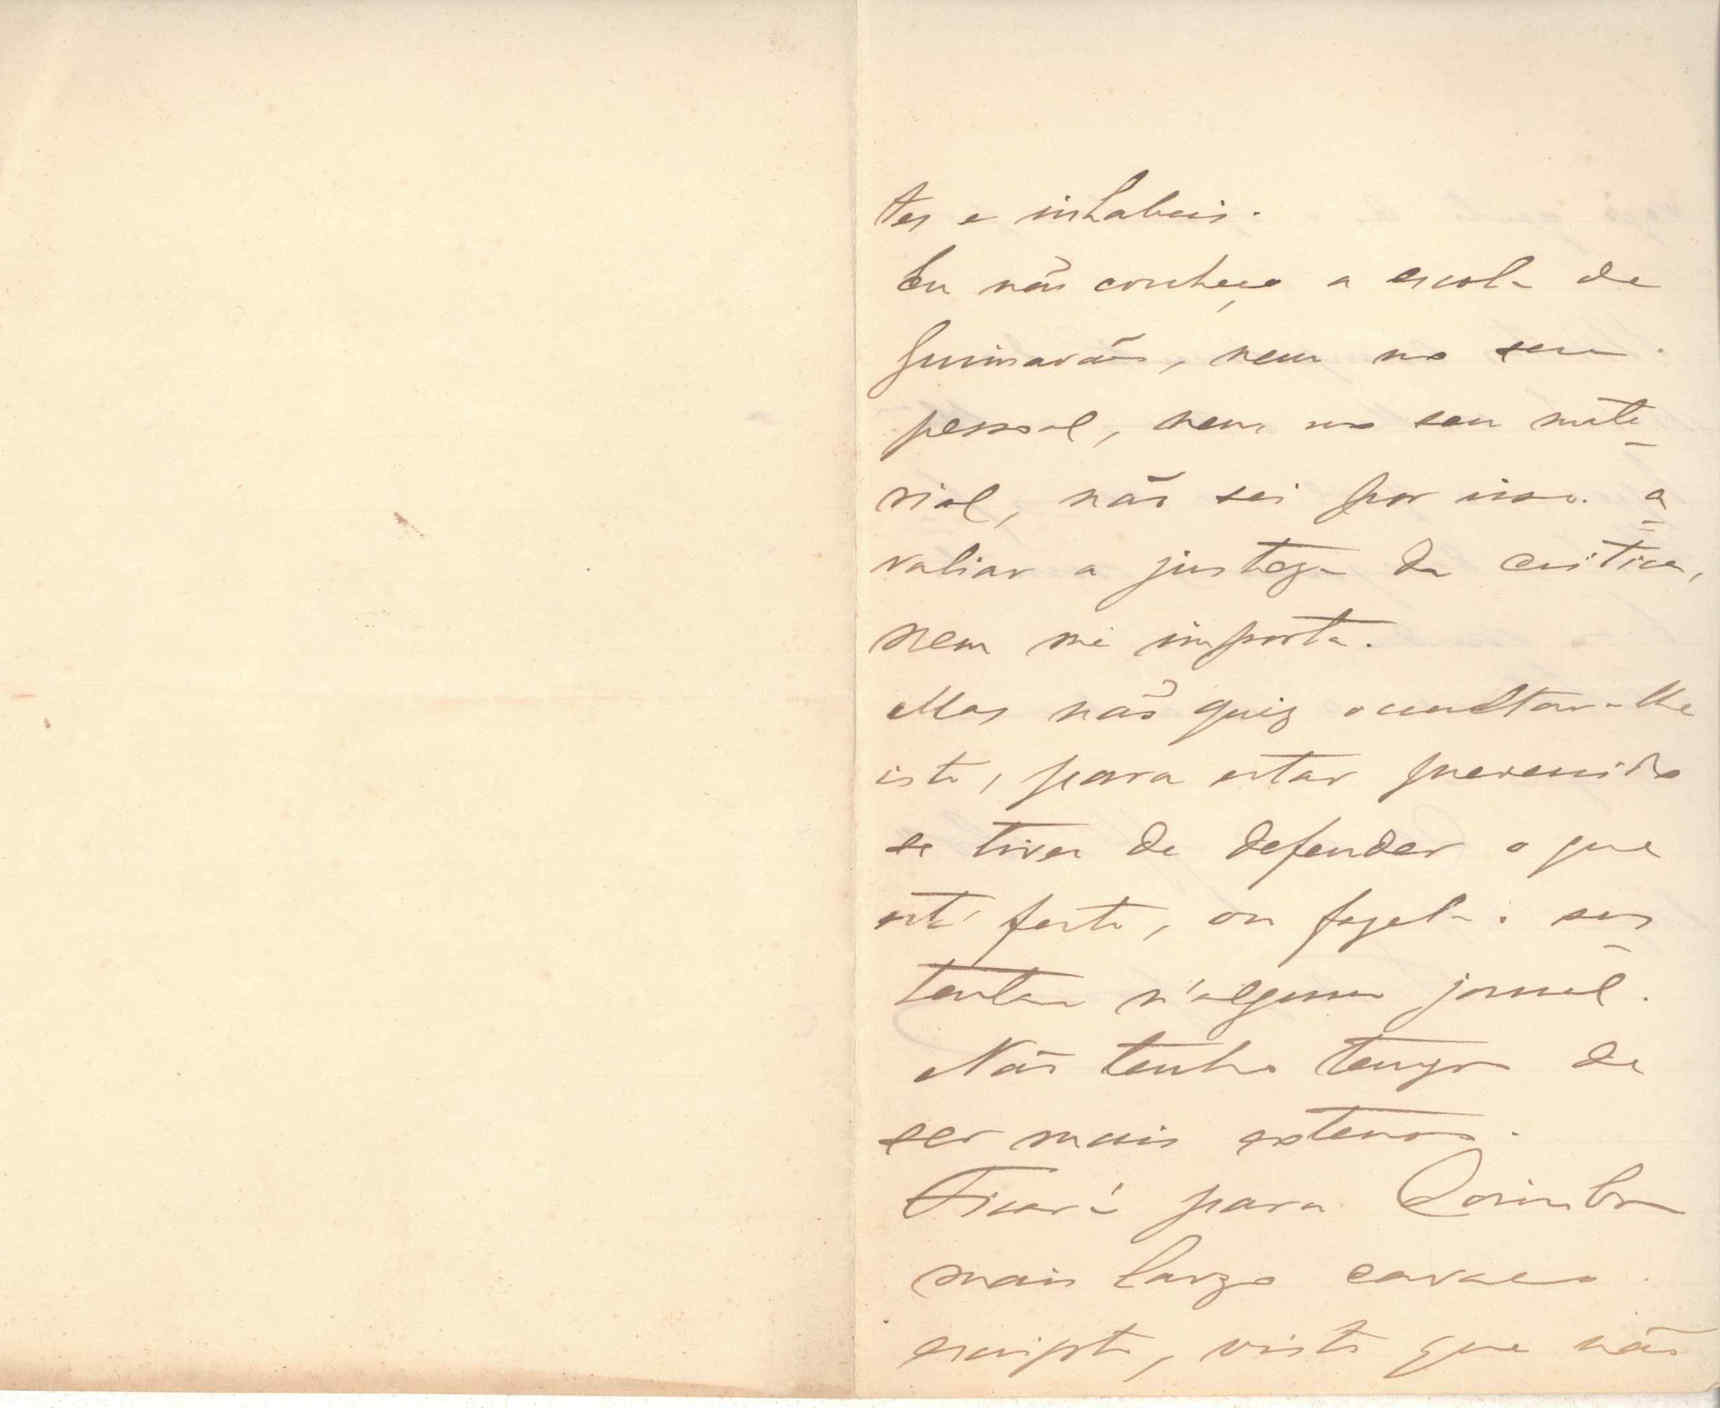 tes e inhabeis.
Eu não conheço a escola de
Guimarães, nem no seu
pessoal, nem no seu mate
rial, não sei por isso a
valiar a justeza da critica,
nem me importa.
Mas não quiz occultar-lhe
isto, para estar prevenido
se tiver de defender o que
está feito, ou fazel-a sus
tentar n'algum jornal.
Não tenho tempo de
ser mais extenso.
Ficará para Coimbra
mais largo cavaco
escripto, visto que não